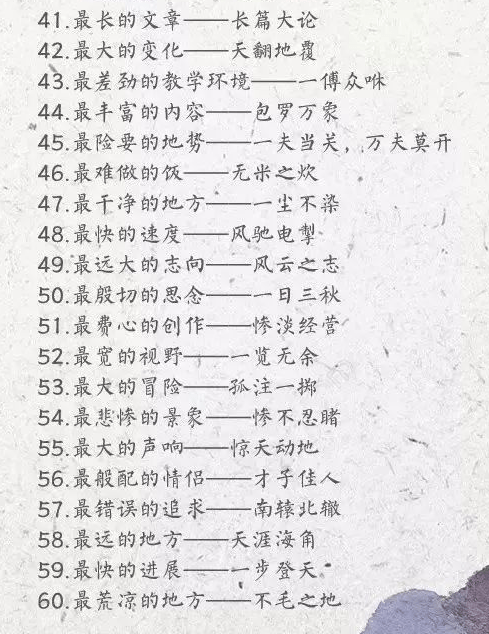 41.最长的文章——长篇大论
42.最大的变化——天翻地覆
43.最差劲的教学环境——一傅众咻
44.最丰富的内容——包罗万象
45.最险要的地势——一夫当关，万夫莫开
46.最难做的饭——无米之炊
47.最干净的地方——一尘不染
48.最快的速度——风驰电掣
49.最远大的志向——风云之志
50.最殷切的思念——一日三秋
51.最费心的创作——惨淡经营
52.最宽的视野——一览无余
53.最大的冒险——孤注一掷
54.最悲惨的景象——惨不忍睹
55.最大的声响——惊天动地
56.最般配的情侣——才子佳人
57.最错误的追求——南辕北辙
58.最远的地方——天涯海角
59.最快的进展——一步登天
60.最荒凉的地方——不毛之地